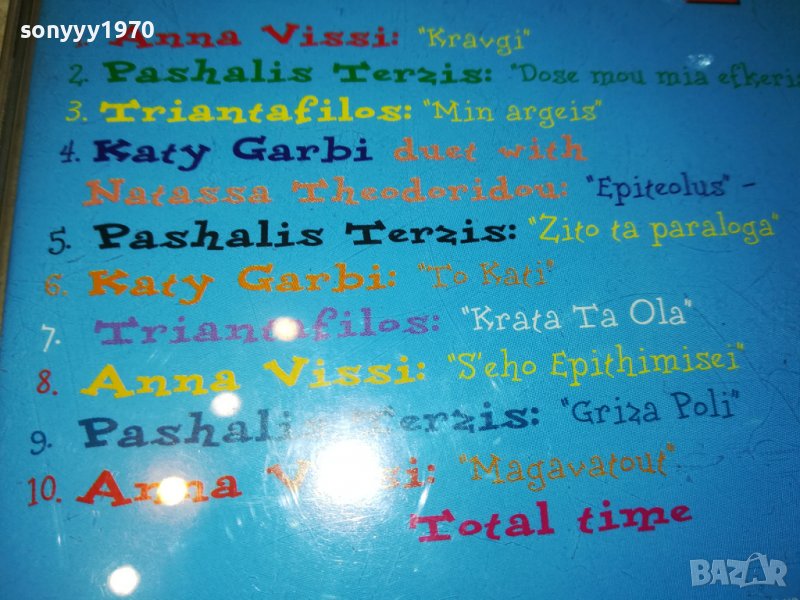 sonyyy1970
1. Anna Vissi: "Kravgi"
2. Pashalis Terzis: "Dose mou mia efkeria
3. Triantafilos: "Min argeis"
4. Katy Garbi duet with
Natassa Theodoridou: "Epiteolus" -
5. Pashalis Terzis: "Zito ta paraloga"
6. Katy Garbi: "To Kati"
7. Triantafilos: "Krata Ta Ola"
8. Anna Vissi: "S'eho Epithimisei"
9. Pashalis Terzis: "Griza Poli"
10. Anna Vissi: "Magavatout"
Total time
BAZAR